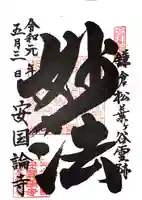 鎌倉松葉ヶ谷霊跡
妙法
安国論寺
令和元年
五月三日